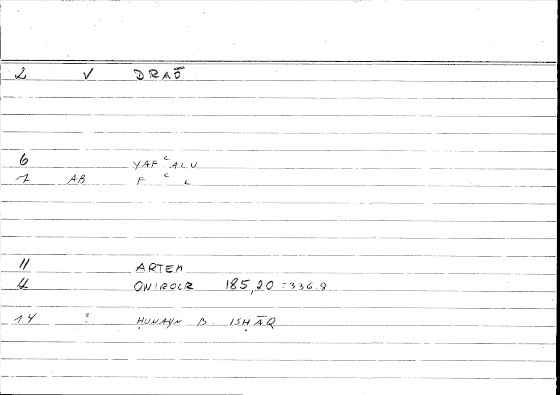 2 V DRAŌ
6 YAFʿALU
1 AB F ʿ L
11 ARTEM
4 ONIROCR 185,20 = 336.9
14 : ḤUNAYN B. ISḤĀQ